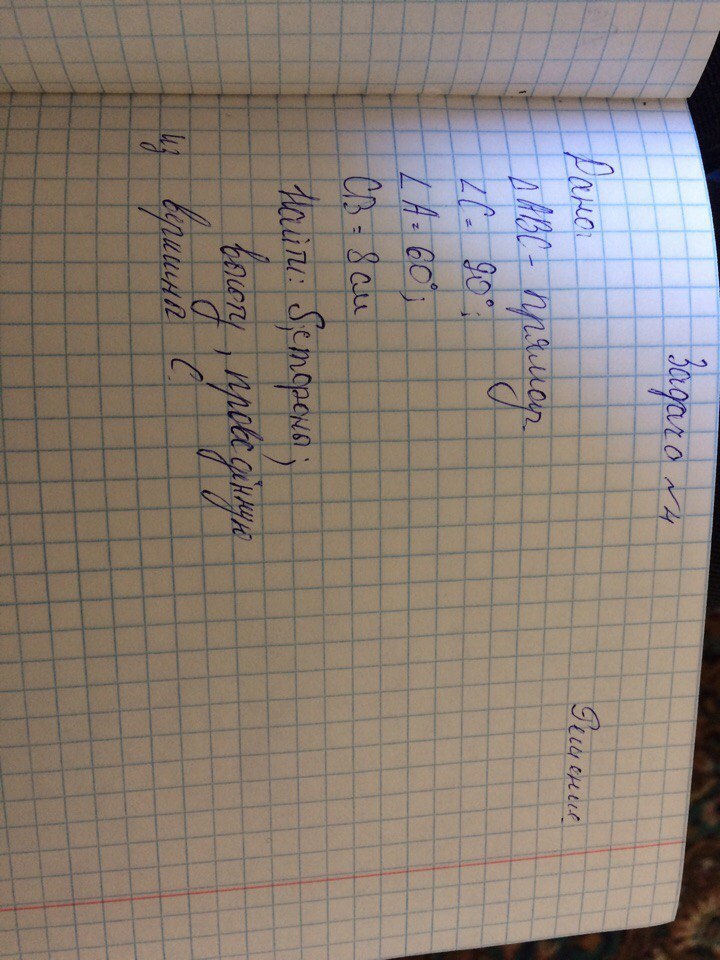 Задача №4
Дано: Решение
Δ ABC - прямоуг.
∠C = 90°;
∠A = 60°;
CB = 8 см
Найти: S; стороны;
высоту, проведённую
из вершины C.